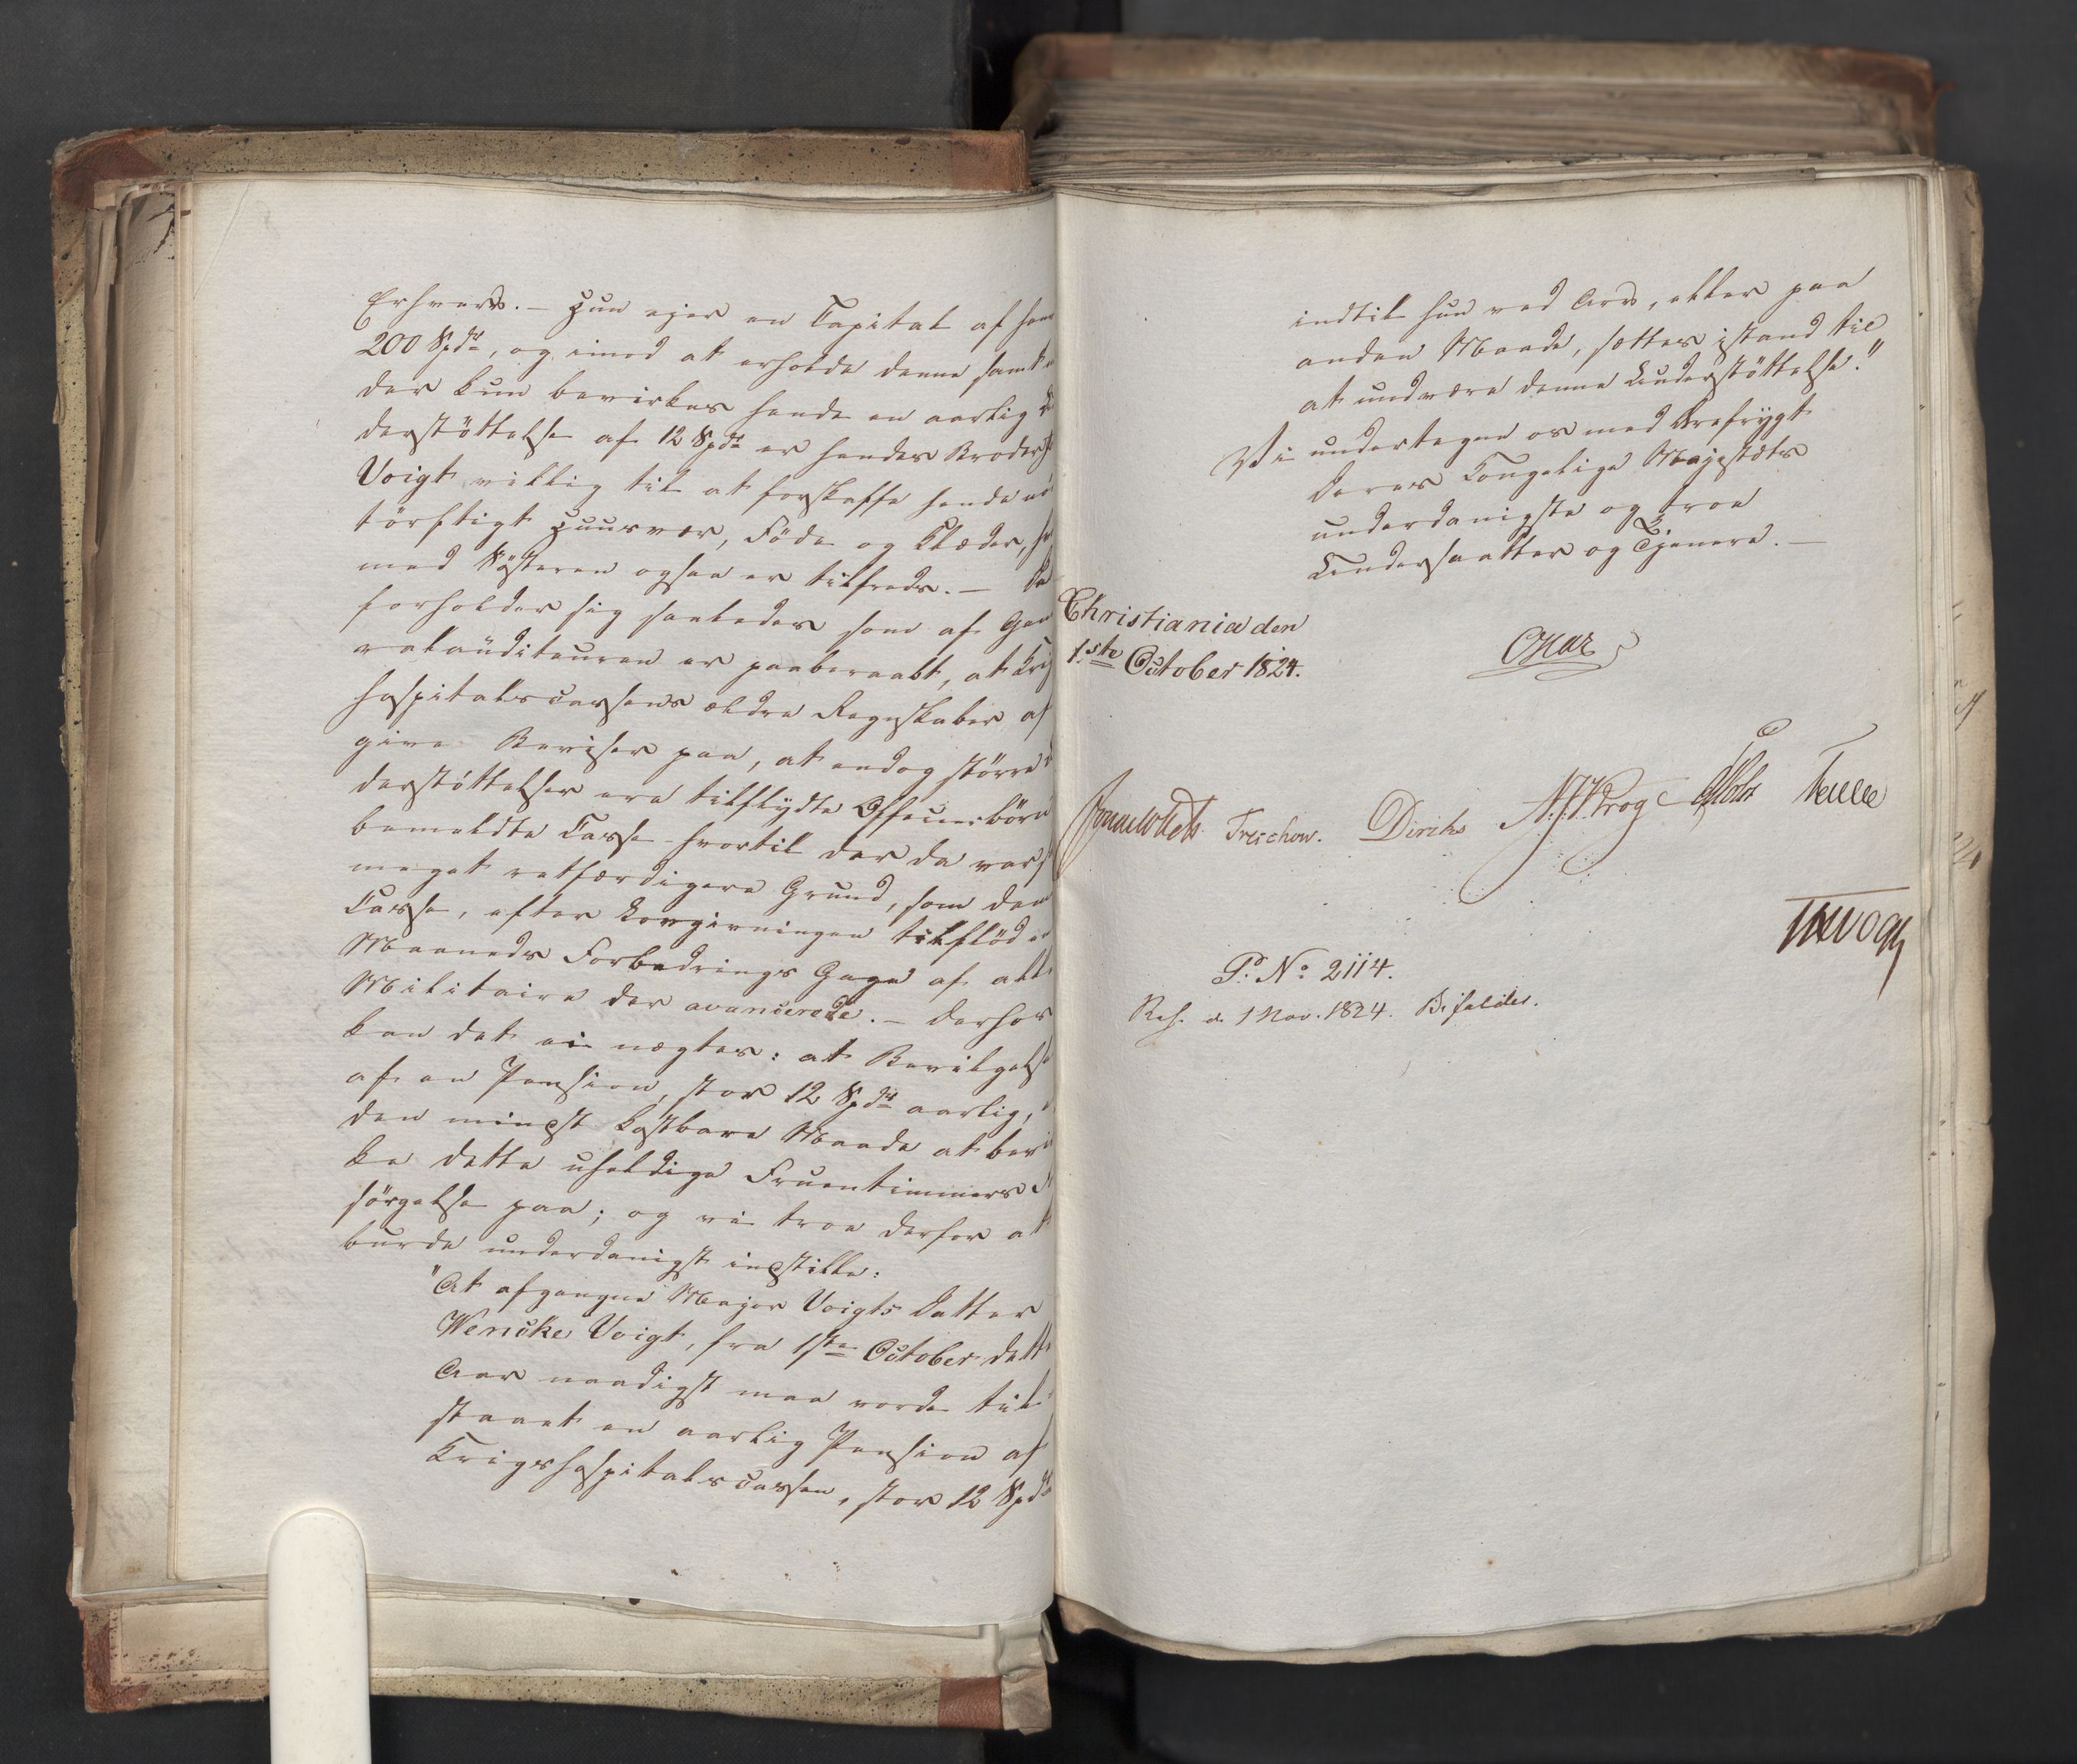 Erhverv. — Hun ejer en Capital af
200 Spdr, og imod at erholde denne samt
der kun bevirkes hende en aarlig
derstöttelse af 12 Spdr er hendes Broder
Voigt villig til at forskaffe hende
törftigt Huusvær, Föde og Klæder,
med Söstren ogsaa er tilfreds. —
forholder sig saaledes som af Gen
ralauditeuren er paaberaabt, at
hospitalscassens ældre Regnskaber af
give Beviser paa, at endog större
derstöttelser ere tilflydte Officeersbörn
bemeldte Casse hvortil der da var
meget retfærdigere Grund, som den
Casse, efter Lovgivningen tilflöd
Maaneds Forbedrings Gage af alle
Militaire der avancerede. — Derhos
kan det ei nægtes: at Bevilgelse
af en Pension, stor 12 Spdr aarlig,
den mindst kostbare Maade at bevir
ke dette uheldige Fruentimmers
sörgelse paa; og vi troe derfor at
burde underdanigst indstille:
"At afgangne Major Voigts Datter
Wencke Voigt, fra 1ste October dette
Aar naadigst maa vorde til
staaet en aarlig Pension af
Krigshospitalscassen, stor 12 Spdr
indtil hun ved Arv, eller paa
anden Maade, sættes istand til
at undvære denne Understöttelse."
Vi undertegne os med Ærefrygt
Deres Kongelige Majestæts
underdanigste og troe
Undersaatter og Tjenere. —
Christiania den
1ste October 1824.
Oscar
Sommerhielm Treschow. Diriks Krog
P. No 2114.
Res. d. 1 Nov. 1824. Bifaldes.